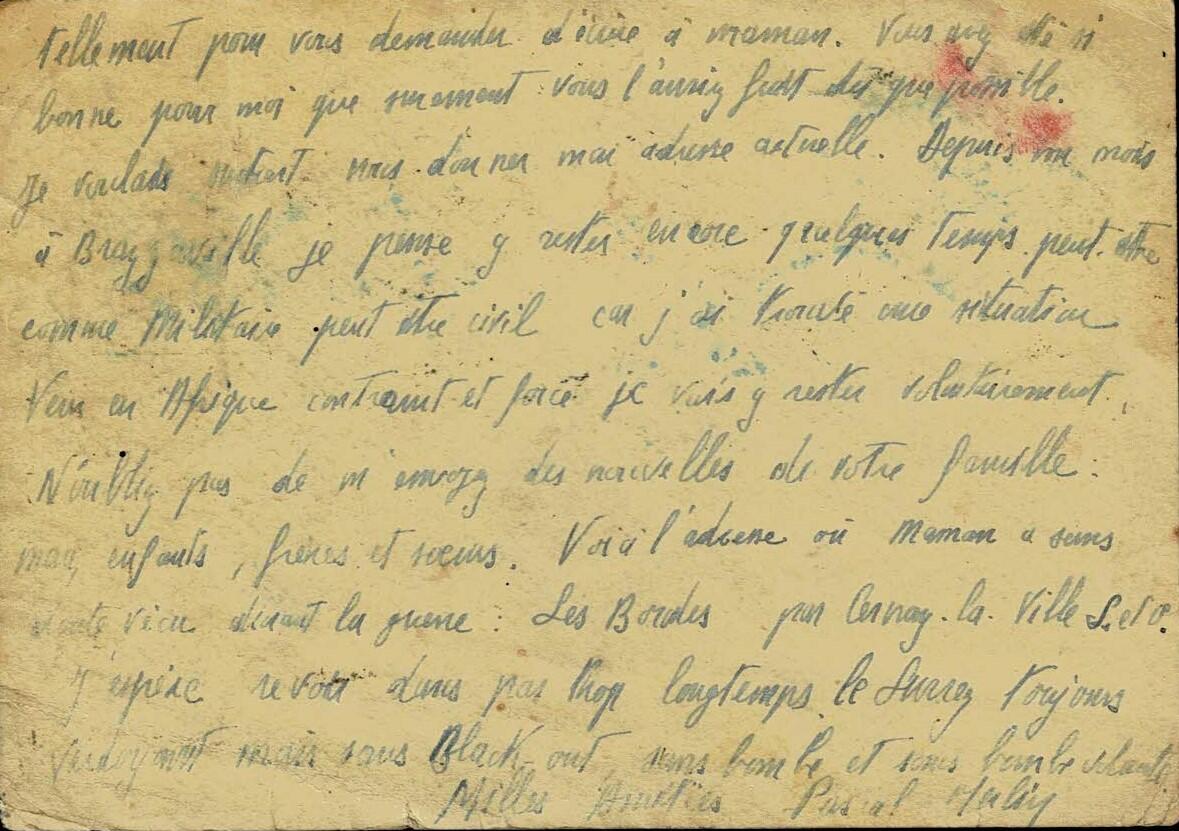 tellement pour vous demander d'écrire à maman. Vous avez été si
bonne pour moi que surement vous l'auriez fait dès que possible.
Je voulais surtout vous donner mai adresse actuelle. Depuis un mois
à Brazzaville je pense y rester encore quelques temps peut-être
comme Militaire peut être civil car j'ai trouvé une situation
Venu en Afrique contraint et forcé je vais y rester volontairement.
N'oubliez pas de m'envoyez des nouvelles de votre famille :
mari, enfants, frères et soeurs. Voici l'adresse où Maman a sans
doute vécu durant la guerre : Les Bordes par Cernay-la-Ville S. et O.
J'espère revoir dans pas trop longtemps le Surrey toujours
verdoyant mais sans Black-out, sans bombe et sans bombe volante
Milles Amitiés Pascal